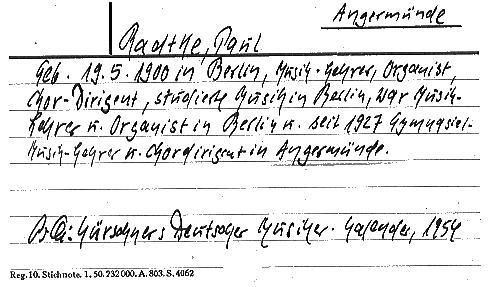 Angermünde
Radtke, Paul
Geb. 19.5.1900 in Berlin, Musik-Lehrer, Organist,
Chor-Dirigent, studierte Musik in Berlin, war Musik-
Lehrer u. Organist in Berlin u. seit 1927 Gymnasial-
Musik-Lehrer u. Chordirigent in Angermünde.
Kürschners Deutscher Musiker-Kalender, 1954
Reg. 10. Stichnote. 1. 50. 232 000. A. 803. S. 4062